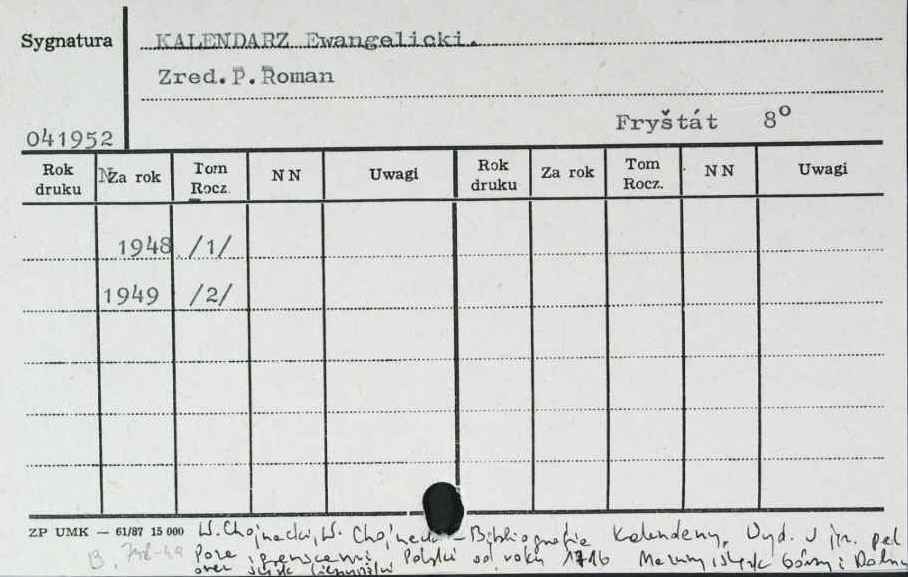 Sygnatura KALENDARZ Ewangelicki.
Zred.P.Roman
Fryštát 8°
041952
Rok druku Za rok Tom Rocz. NN Uwagi Rok druku Za rok Tom Rocz. NN Uwagi
1948 /1/
1949 /2/
ZP UMK — 61/87 15 000 W. Chojnacki, W. Chojnacki – Bibliografia Kalendarzy Wyd. w jęz. pol
B. poza granicami Polski od roku 1716 Mazury, Śląsk Górny i Dolny